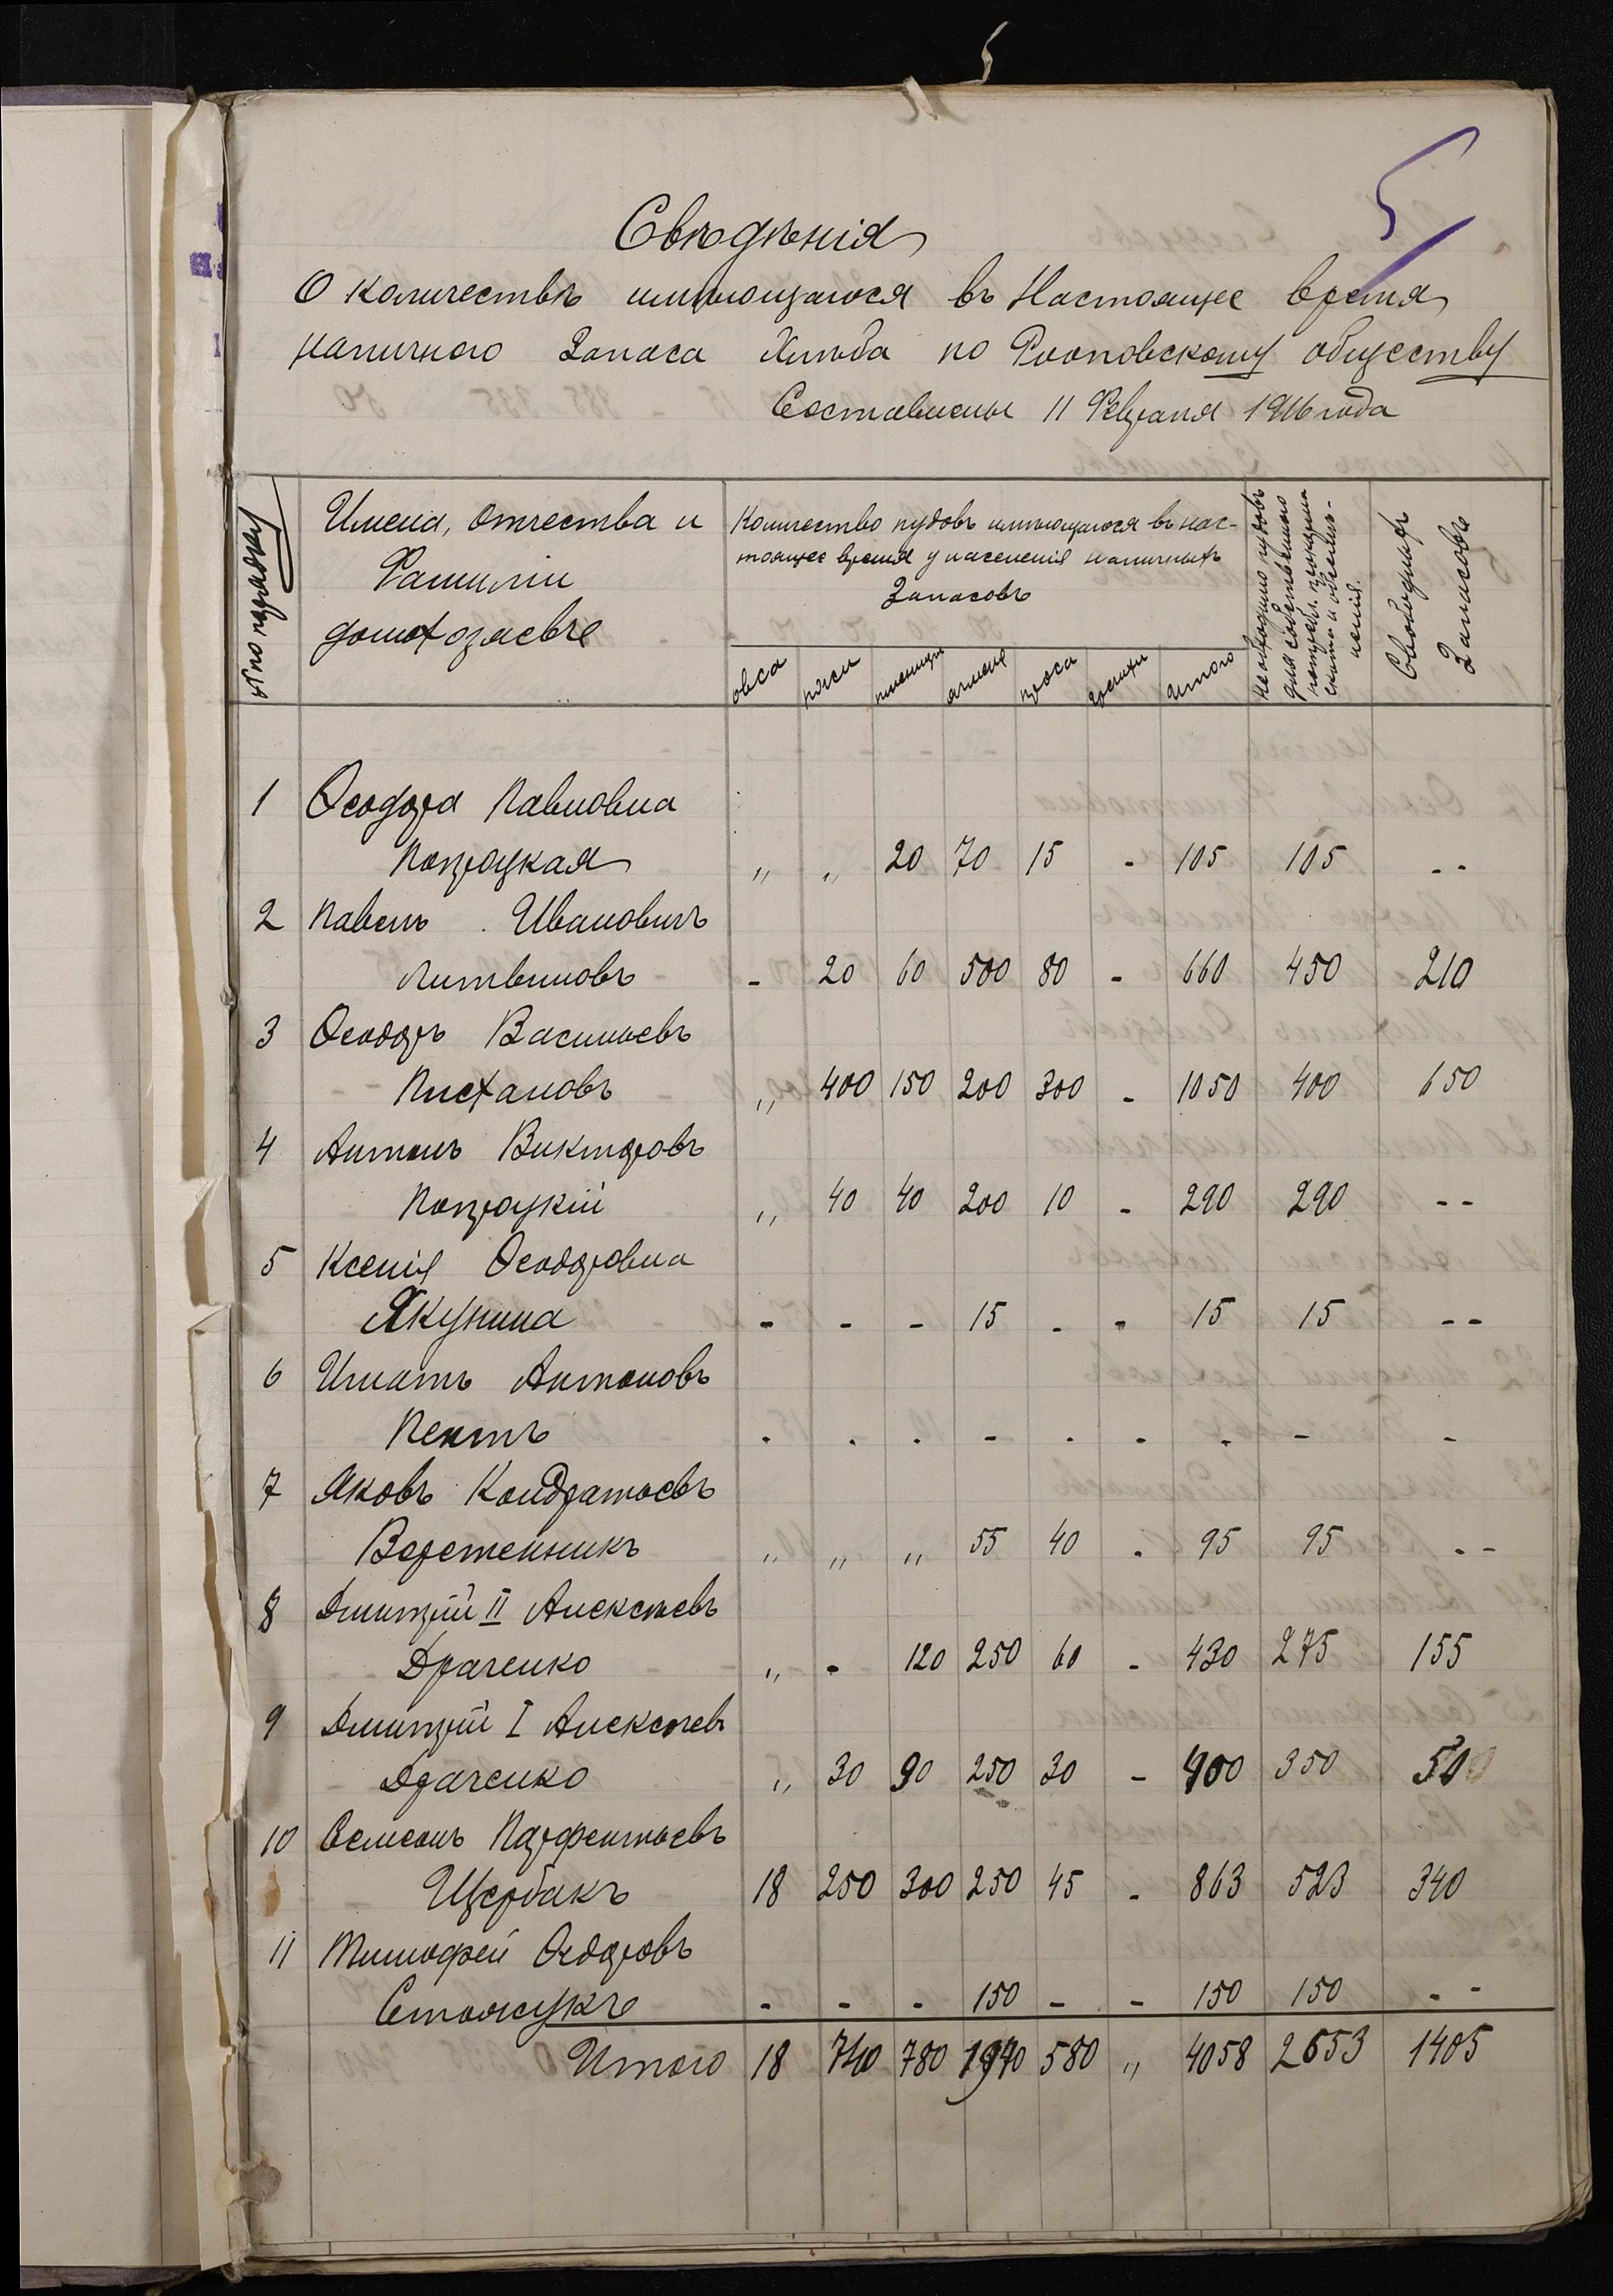 5
Свѣдѣнія
О количествѣ имѣющагося въ Настоящее время
наличнаго Запаса Хлѣба по обществу
Составлены 11 Февраля 1916 года
№ по порядку
Имена, Отчества и
Фамиліи
домохозяевъ
Количество пудовъ имѣющагося въ нас-
тоящее время у населенія наличныхъ
Запасовъ
овса ржи пшеницы ячменя проса гречихи Итого
Необходимо пудовъ
для собственнаго
потребл. прокормл.
скота и обсѣме-
ненія.
Свободныхъ
Запасовъ
1 Ѳеодора Павловна
" " 20 70 15 - 105 105 --
2 Павелъ Ивановичъ
Литвиновъ - 20 60 500 80 - 660 450 210
3 Ѳеодоръ Васильевъ
Плехановъ " 400 150 200 300 - 1050 400 650
4 Антонъ Викторовъ
" 40 40 200 10 - 290 290 --
5 Ксенія Ѳеодоровна
Якунина - - - 15 - - 15 15 --
6 Игнатъ Антоновъ
- - - - - - - - -
7 Яковъ Кондратьевъ
Веретенникъ " " " 55 40 - 95 95 --
8 Дмитрій II Алексѣевъ
Драченко " - 120 250 60 - 430 275 155
9 Дмитрій I Алексѣев
Драченко " 30 90 250 30 - 400 350 50
10 Семенъ Парфентьевъ
Щербакъ 18 250 300 250 45 - 863 523 340
11 Тимофей Ѳедоровъ
- - - 150 - - 150 150 --
Итого 18 740 780 1940 580 " 4058 2653 1405